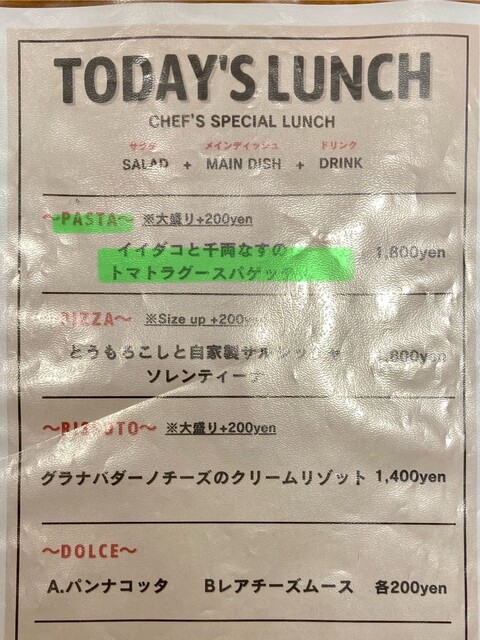 TODAY'S LUNCH
CHEF'S SPECIAL LUNCH
サラダ メインディッシュ ドリンク
SALAD + MAIN DISH + DRINK
〜PASTA〜 ※大盛り+200yen
イイダコと千両なすの 1,800yen
トマトラグースパゲッティ
〜PIZZA〜 ※Size up +200yen
とうもろこしと自家製サルシッチャ ,800yen
ソレンティーナ
〜RISOTTO〜 ※大盛り+200yen
グラナパダーノチーズのクリームリゾット 1,400yen
〜DOLCE〜
A.パンナコッタ Bレアチーズムース 各200yen